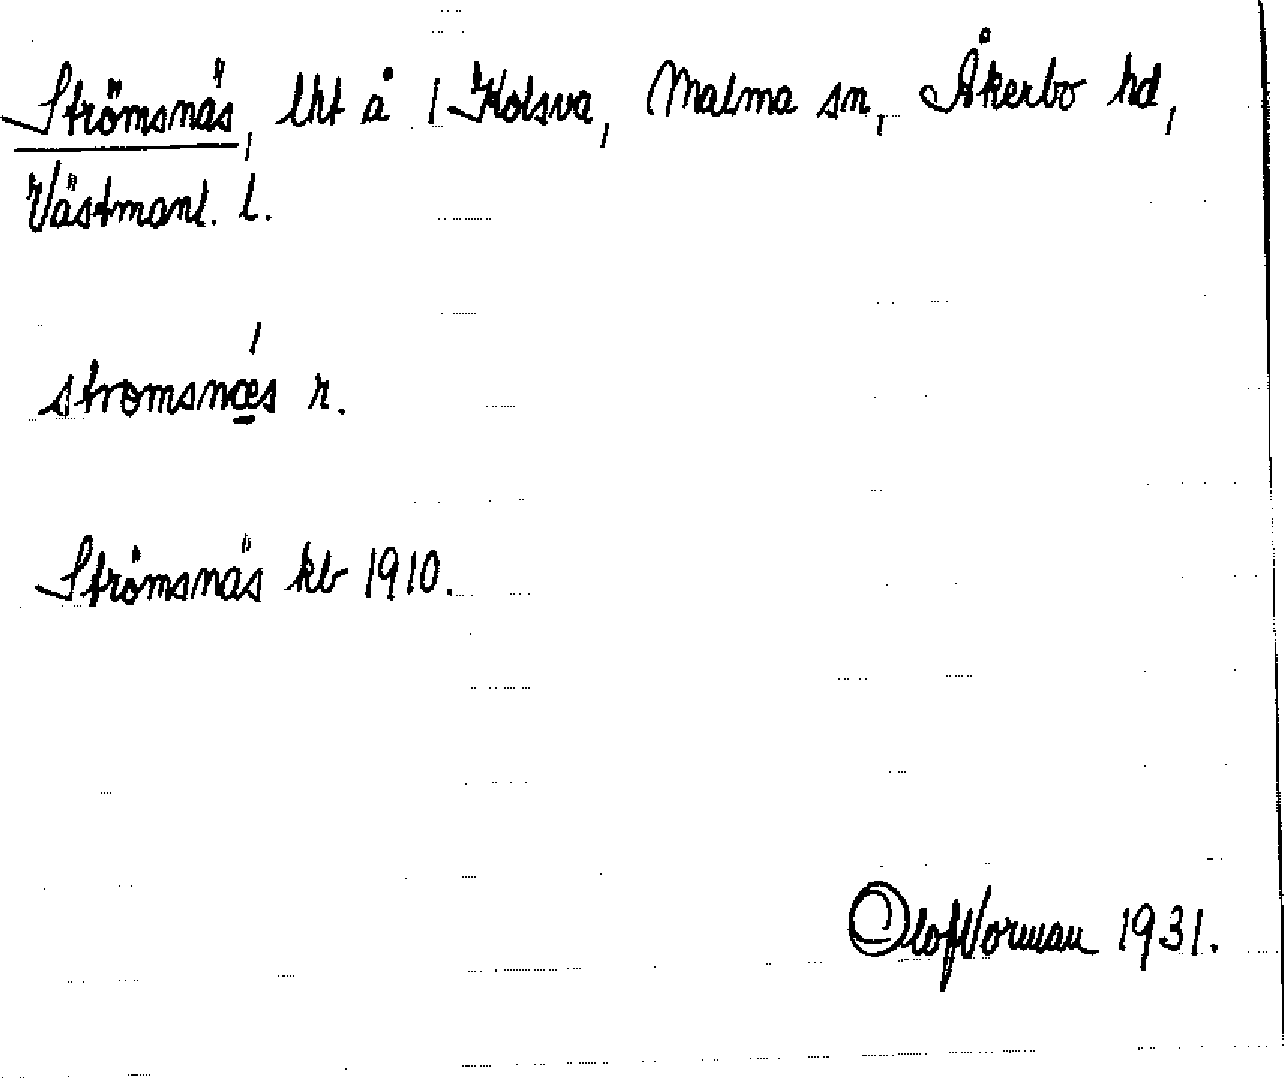 Strömsnäs, lht å 1 Kolsva, Malma sn, Åkerbo hd,
Västmanl. l.
stromsnǽ̲s r.
Strömsnäs kb 1910.
Olof Norman 1931.